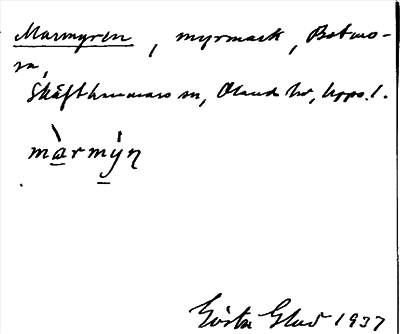 Marmyren, myrmark, Botmo-
ra,
Skäfthammars sn, Oland hd, Upps. l.
màrmýn
Gösta Glad 1937